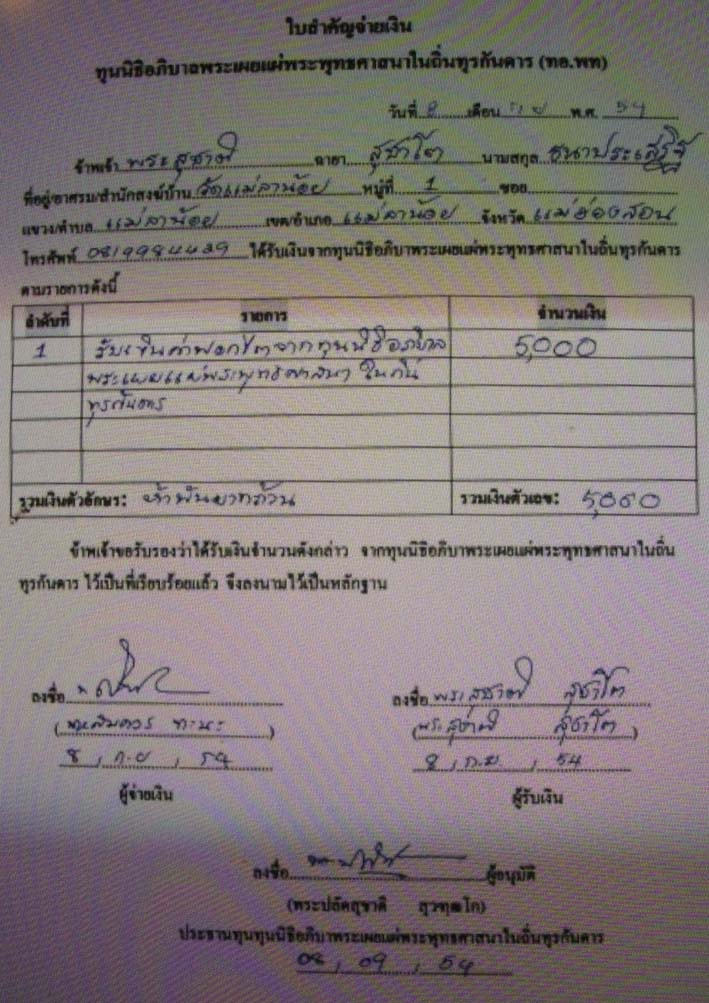 ใบสำคัญจ่ายเงิน
ทุนนิธิอภิบาลพระเผยแผ่พระพุทธศาสนาในถิ่นทุรกันดาร (ทอ.พท)
วันที่ 8 เดือน ก.ย พ.ศ. 54
ข้าพเจ้า พระสุชาติ ฉายา สุชาโต นามสกุล ธนาประเสริฐ
ที่อยู่อาศรม/สำนักสงฆ์บ้าน วัดแม่ลาน้อย หมู่ที่ 1 ซอย
แขวง/ตำบล แม่ลาน้อย เขต/อำเภอ แม่ลาน้อย จังหวัด แม่ฮ่องสอน
โทรศัพท์ ได้รับเงินจากทุนนิธิอภิบาพระเผยแผ่พระพุทธศาสนาในถิ่นทุรกันดาร
ตามรายการดังนี้
ลำดับที่ รายการ จำนวนเงิน
1 รับเงินค่า จากทุนนิธิอภิบาล 5,000
พระเผยแผ่พระพุทธศาสนา ในถิ่น
ทุรกันดาร
รวมเงินตัวอักษร: ห้าพันบาทถ้วน รวมเงินตัวเลข: 5,000
ข้าพเจ้าขอรับรองว่าได้รับเงินจำนวนดังกล่าว จากทุนนิธิอภิบาพระเผยแผ่พระพุทธศาสนาในถิ่น
ทุรกันดาร ไว้เป็นที่เรียบร้อยแล้ว จึงลงนามไว้เป็นหลักฐาน
ลงชื่อ ลงชื่อ พระสุชาติ สุชาโต
(พระสุชาติ สุชาโต)
8 , ก.ย , 54 8 , ก.ย. , 54
ผู้จ่ายเงิน ผู้รับเงิน
ลงชื่อ ผู้อนุมัติ
(พระปลัดสุชาติ สุวฑฺฒโก)
ประธานทุนทุนนิธิอภิบาพระเผยแผ่พระพุทธศาสนาในถิ่นทุรกันดาร
08 , 09 , 54